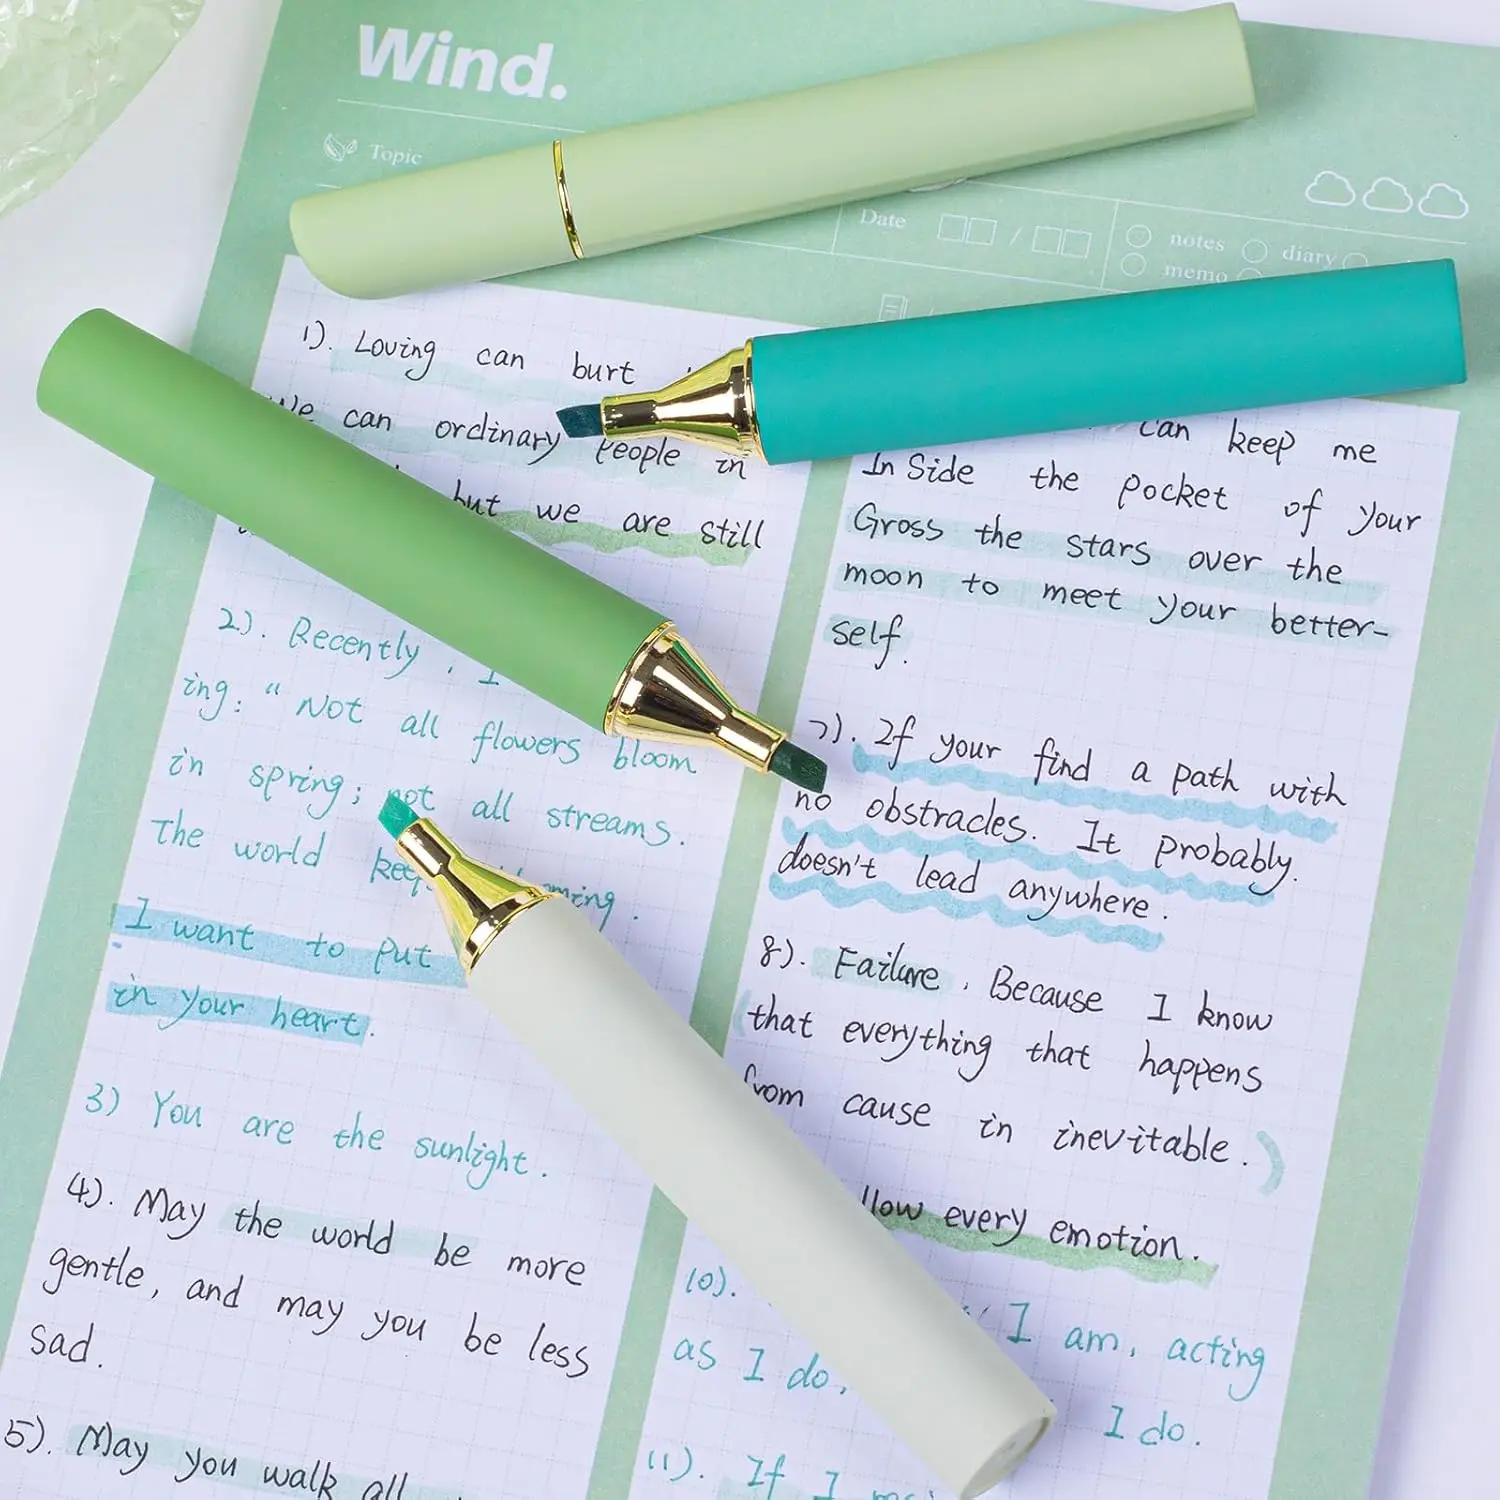 Wind.
Topic
Date / notes diary
memo
1). Loving can burt
We can ordinary people in
but we are still
2). Recently, I
ing: " Not all flowers bloom
in spring; not all streams.
The world
I want to put
in your heart.
3) You are the sunlight.
4). May the world be more
gentle, and may you be less
sad.
5). May you walk all
can keep me
In Side the pocket of your
Gross the stars over the
moon to meet your better-
self.
7). If your find a path with
no obstracles. It probably.
doesn't lead anywhere.
8). Failure, Because I know
that everything that happens
from cause in inevitable.
every emotion.
10). I am, acting
as I do, I do.
11). If I